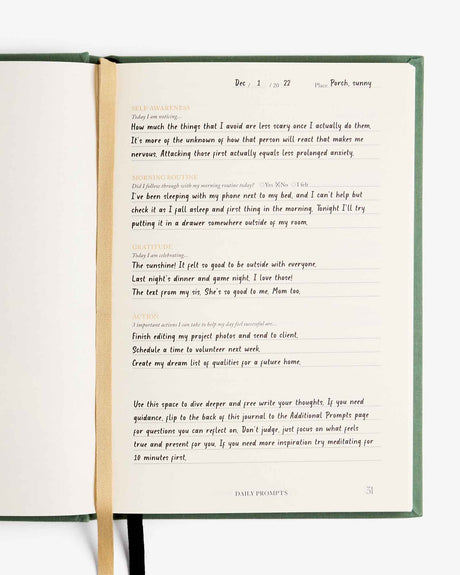 Dec / 1 / 20 22 Place Porch, sunny
SELF-AWARENESS
Today I am noticing...
How much the things that I avoid are less scary once I actually do them.
It's more of the unknown of how that person will react that makes me
nervous. Attacking those first actually equals less prolonged anxiety.
MORNING ROUTINE
Did I follow through with my morning routine today? Yes No I felt
I've been sleeping with my phone next to my bed, and I can't help but
check it as I fall asleep and first thing in the morning. Tonight I'll try
putting it in a drawer somewhere outside of my room.
GRATITUDE
Today I am celebrating...
The sunshine! It felt so good to be outside with everyone.
Last night's dinner and game night, I love those!
The text from my sis. She's so good to me. Mom too.
ACTION
3 important actions I can take to help my day feel successful are...
Finish editing my project photos and send to client.
Schedule a time to volunteer next week.
Create my dream list of qualities for a future home.
Use this space to dive deeper and free write your thoughts. If you need
guidance, flip to the back of this journal to the Additional Prompts page
for questions you can reflect on. Don't judge, just focus on what feels
true and present for you. If you need more inspiration try meditating for
10 minutes first.
DAILY PROMPTS
51